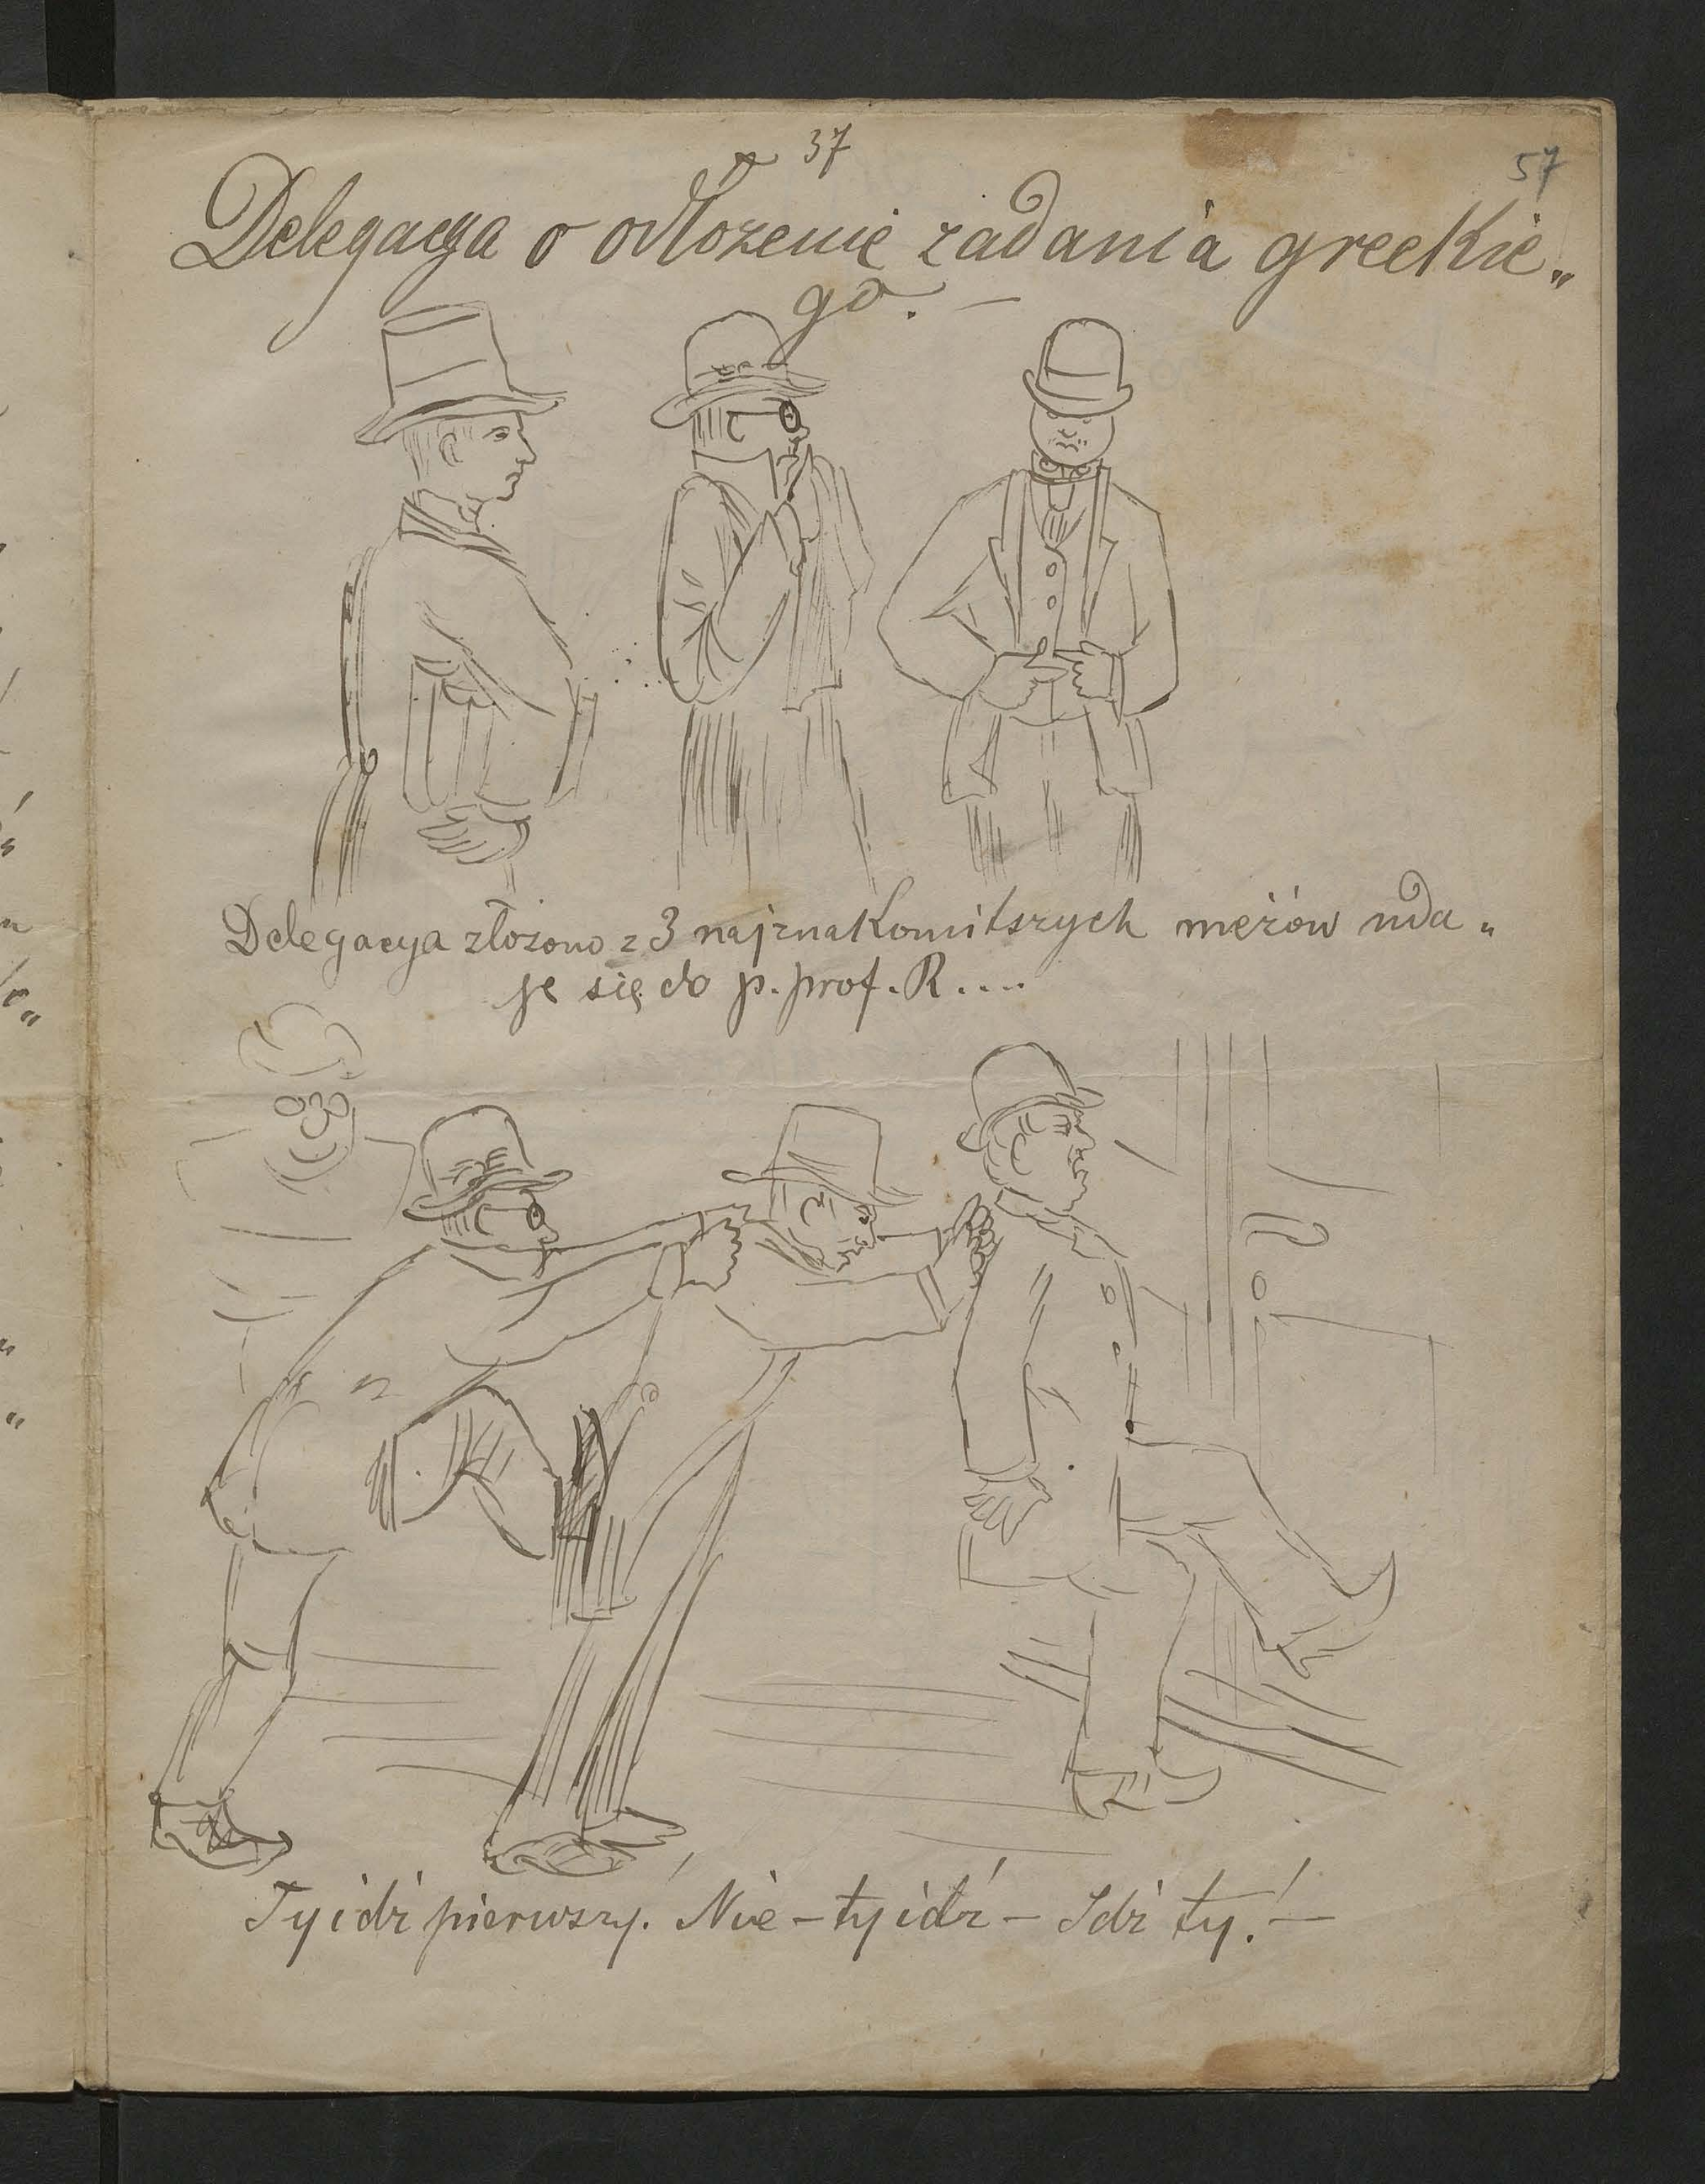 37
57
Delegacya o odłożenie zadania greckie„
go. —
Delegacya złożona z 3 najznakomitszych mężów uda„
je się do p. prof. R....
Ty idź pierwszy! Nie – ty idź – Idź ty! —